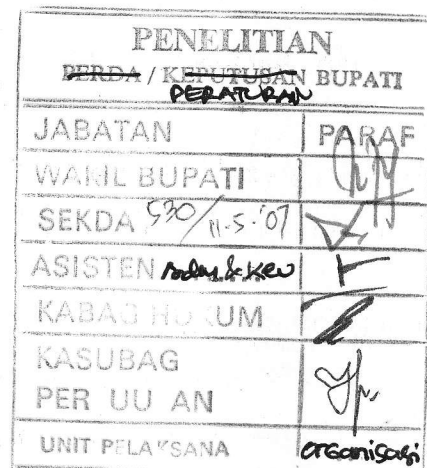 PENELITIAN
PERDA / KEPUTUSAN BUPATI
PERATURAN
JABATAN PARAF
WAKIL BUPATI
SEKDA 530/11-5-'07
ASISTEN Adm & Keu
KABAG HUKUM
KASUBAG
PER UU AN
UNIT PELAKSANA organisasi